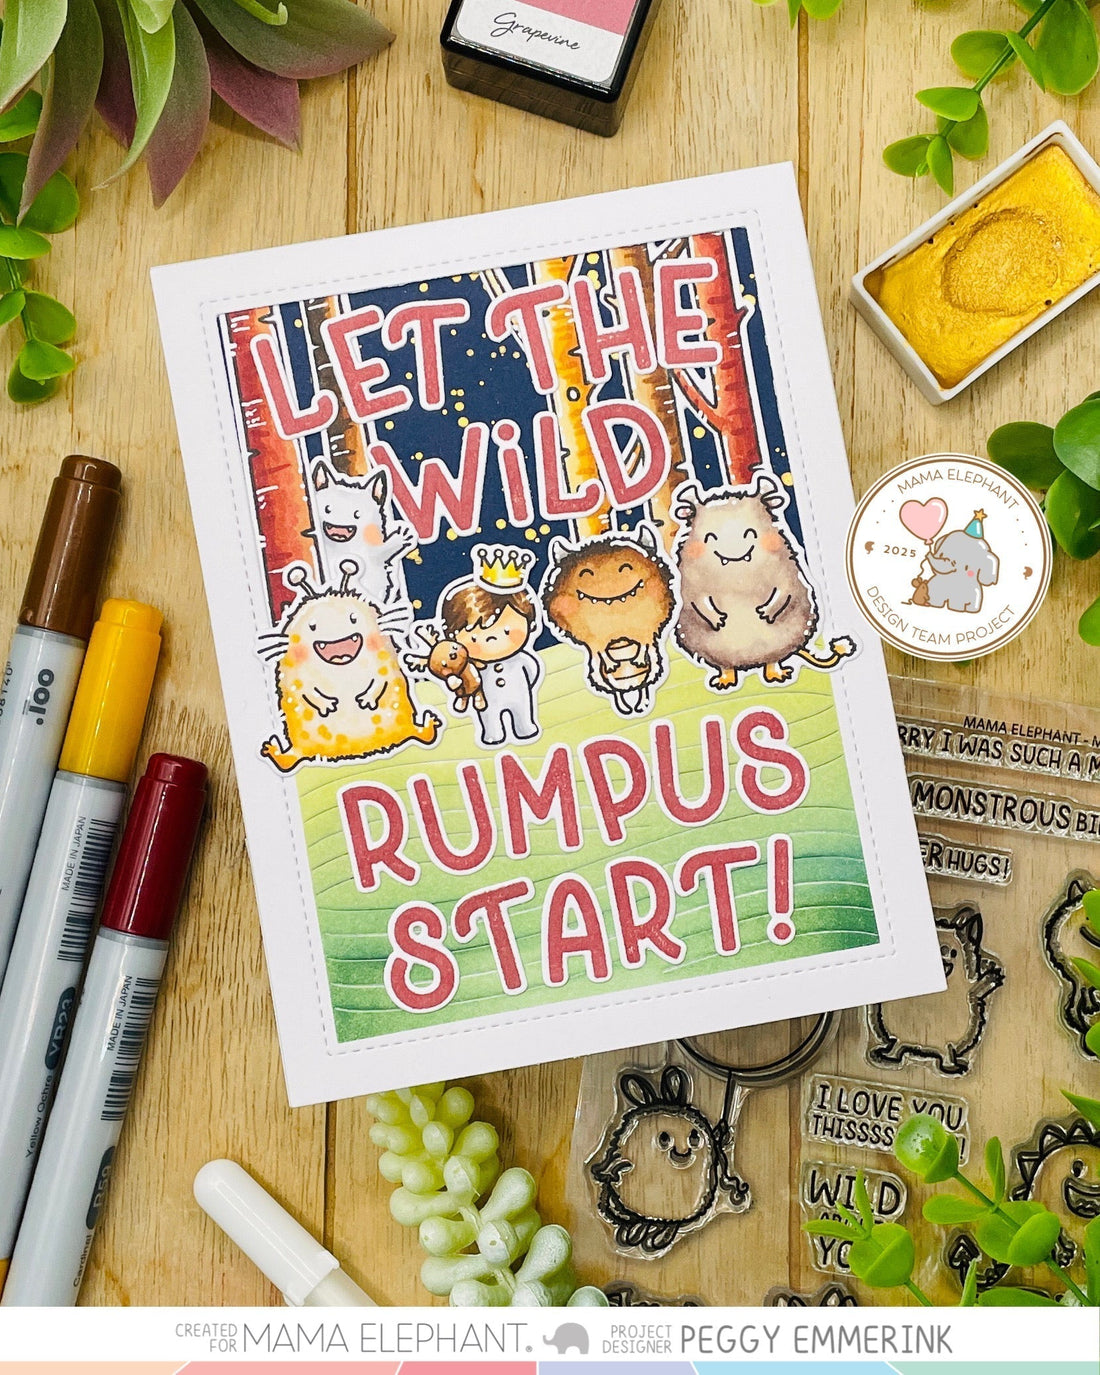 Grapevine
LET THE
WiLD
RUMPUS
START!
MAMA ELEPHANT
2025
DESIGN TEAM PROJECT
MAMA ELEPHANT - M
RRY I WAS SUCH A M
MONSTROUS BI
ER HUGS!
I LOVE YOU
THISSSS
WILD
YO
.Too
MADE IN JAPAN
YR23
Yellow Ochre
MADE IN JAPAN
R59
Cardinal
CREATED
FOR
MAMA ELEPHANT®
PROJECT
DESIGNER
PEGGY EMMERINK